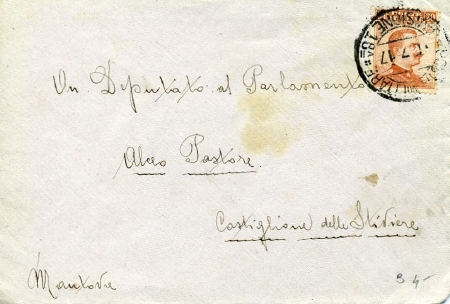 Un Deputato al Parlamento
Alceo Pastore
Castiglione delle Stiviere
Mantova